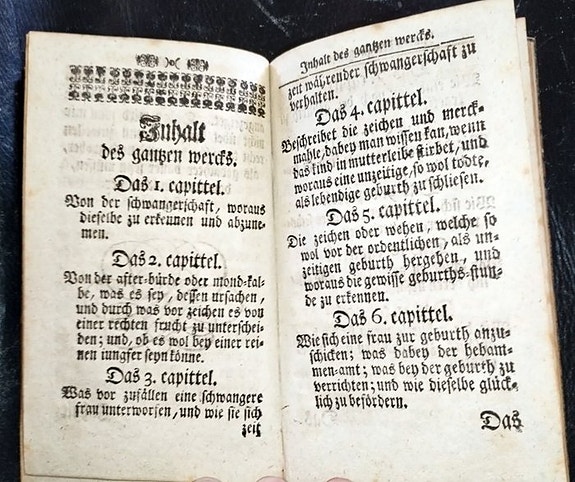 Inhalt
des gantzen wercks.
Das 1. capittel.
Von der schwangerschaft, woraus
dieselbe zu erkennen und abzune-
men.
Das 2. capittel.
Von der after-bürde oder mond-kal-
be, was es sey, dessen ursachen,
und durch was vor zeichen es von
einer rechten frucht zu unterschei-
den; und, ob es wol bey einer rei-
nen jungfer seyn könne.
Das 3. capittel.
Was vor zufällen eine schwangere
frau unterworfen, und wie sie sich
zeit
Inhalt des gantzen wercks.
zeit währender schwangerschaft zu
verhalten.
Das 4. capittel.
Beschreibet die zeichen und merck-
mahle, dabey man wissen kan, wenn
das kind in mutterleibe stirbet, und
woraus eine unzeitige, so wol todte,
als lebendige geburth zu schliesen.
Das 5. capittel.
Die zeichen oder wehen, welche so
wol vor der ordentlichen, als un-
zeitigen geburth hergehen, und
woraus die gewisse geburths-stun-
de zu erkennen.
Das 6. capittel.
Wie sich eine frau zur geburth anzu-
schicken; was dabey der hebam-
men-amt; was bey der geburth zu
verrichten; und wie dieselbe glück-
lich zu befördern.
Das